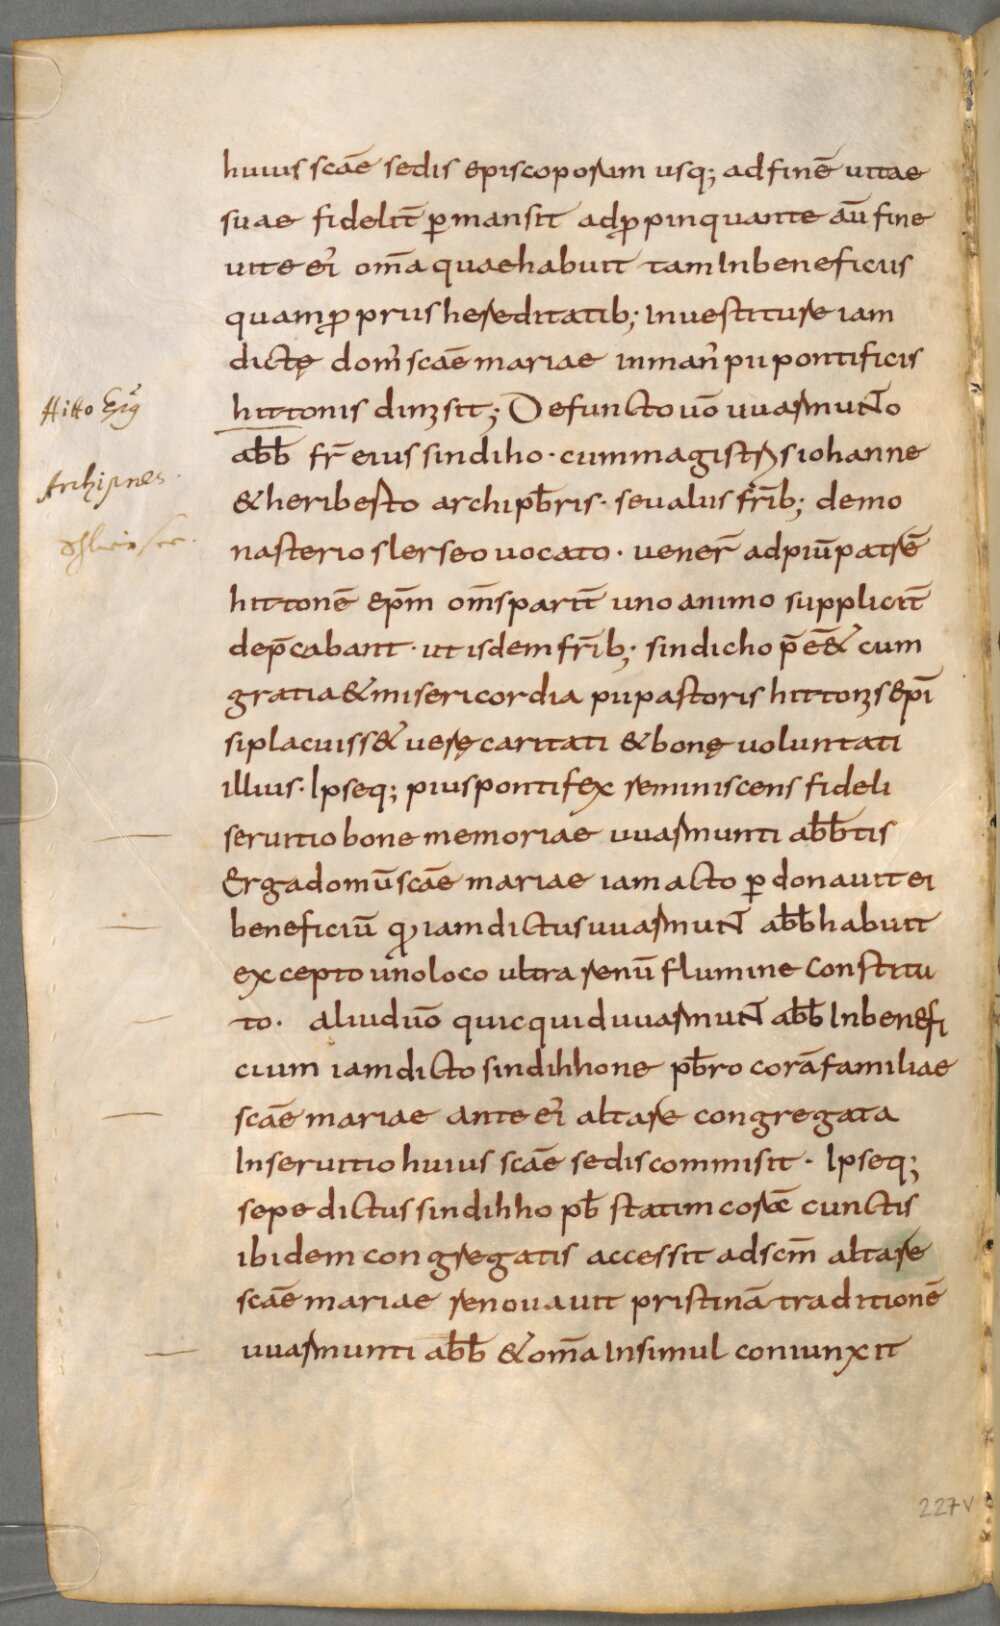 huius scāe sedis episcoporum usq; ad finē uitae
suae fidelit̄ p̱mansit adp̱pinquante aū fine
uite ei᾽ om̄a quae habuit tam in beneficiis
quam p̱priis hereditatib; inuestiture iam
dictę dom᾽ scāe mariae in man᾽ pii pontificis
hittonis dimisit; Defuncto uō uuarmunto
abb̄ fr̄ eius sindiho · cum magistris iohanne
& heriberto archipb̄ris · seu aliis fr̄ib; de mo
nasterio slerseo uocato · uener̄ ad piū patrē
hittonē ep̄m om̄s parit̄ uno animo supplicit̄
dep̄cabant · ut isdem fr̄ib; · sindicho p̄e&̄ cum
gratia & misericordia pii pastoris hittonis ep̄i
si placuiss& uerę caritati & bonę uoluntati
illius · Ipseq; pius pontifex reminiscens fideli
seruitio bone memoriae uuarmunti abb̄tis
erga domū scāe mariae iam acto p̱donauit ei
beneficiū q̱ iamdictus uuarmunt abb̄ habuit
excepto uno loco ultra renū flumine constitu
to · aliud uō quicquid uuarmunt abb̄ In benefi
cium iamdicto sindihhone pb̄ro corā familiae
scāe mariae ante ei᾽ altare congregata
In seruitio huius scāe sedis commisit · Ipseq;
sepe dictus sindihho pb̄ statim corā cunctis
ibidem congregatis accessit ad sc̄m altare
scāe mariae renouauit pristinā traditionē
uuarmunti abb̄ & om̄a Insimul coniunxit
Hitto Ep̄s
Archipres
227v